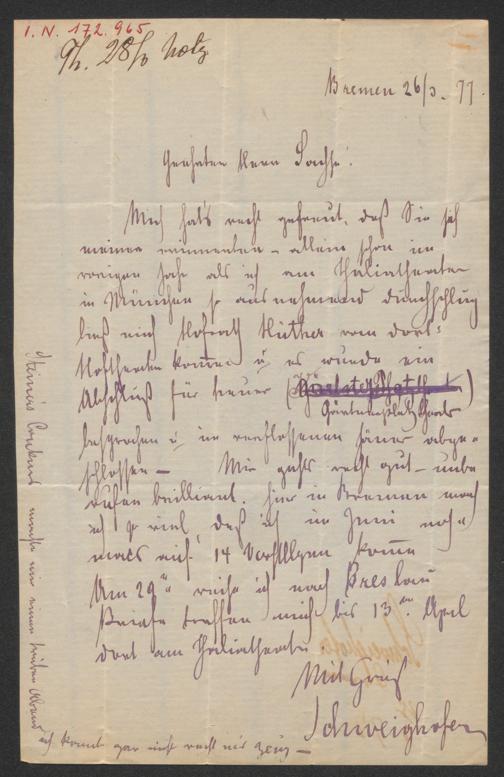 I. N. 172.965
Bremen 26/3. 77.
Geehrter Herr Sachse!
Mich hat's recht gefreut, daß Sie sich
meiner erinnerten – allein schon im
vorigen Jahr als ich am Thaliatheater
in München so ausnehmend durchschlug
ließ mich Hofrath Hüther vom dort:
Hoftheater kommen u es wurde ein
Abschluß für heuer (
Gärtnerplatztheater)
besprochen u. im verflossenen Jänner abge-
schlossen – Mir gehts recht gut –
rufen brilliant. Hier in Bremen mach
ich so viel, daß ich im Juni noch
mals auf 14 Vorstllgen komme
Am 29ten reise ich nach Breslau
Briefe treffen mich bis 13ten April
dort am Thaliatheater
Mit Gruß
Schweighofer
Steiners Conkurs machte mir einen trüben Abend
ich konnte gar nicht recht in's Zeug –